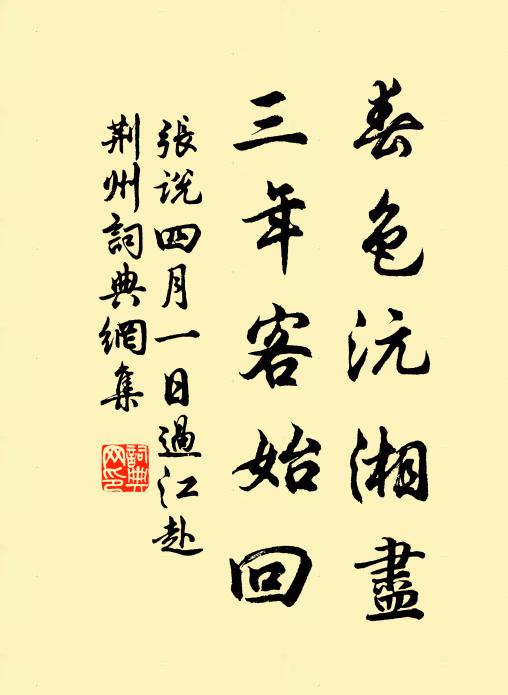 春色沅湘盡
三年客始回
張説四月一日過江赴
荆州詞典網集
詞典
网印